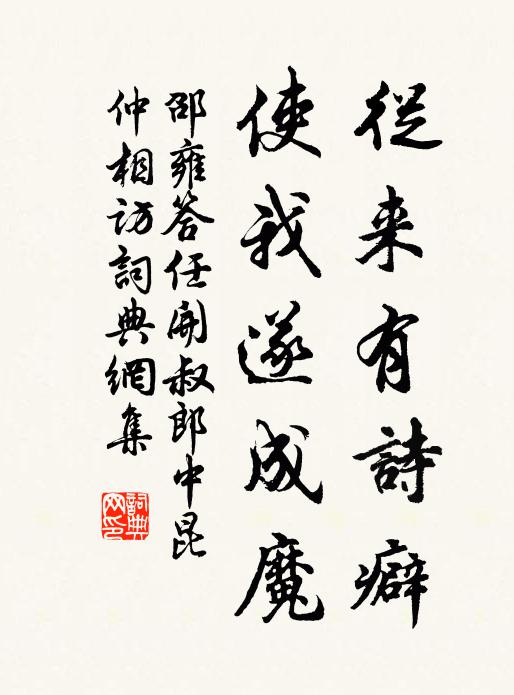 從来有詩癖
使我遂成魔
邵雍答任開叔郎中昆
仲相訪詞典網集
詞典网印